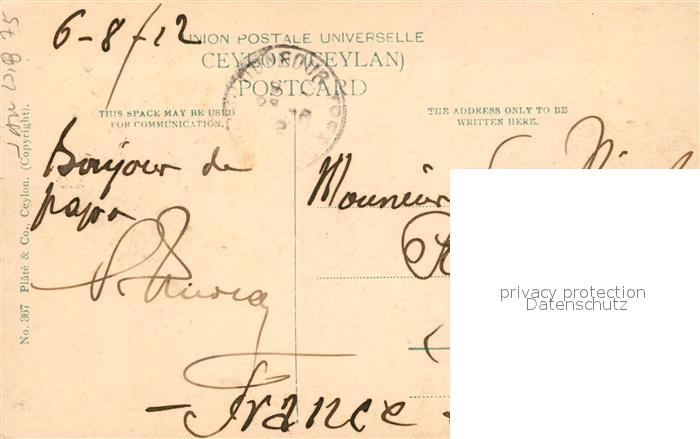 6-8/12
UNION POSTALE UNIVERSELLE
CEYLON (CEYLAN)
POSTCARD
THIS SPACE MAY BE USED
FOR COMMUNICATION.
THE ADDRESS ONLY TO BE
WRITTEN HERE.
Bonjour de
papa
Monsieur
France
No. 367 Plâté & Co., Ceylon. (Copyright).
privacy protection
Datenschutz